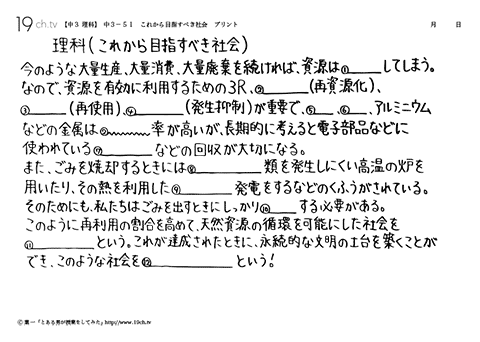 19ch.tv 【中3 理科】 中3-51 これから目指すべき社会 プリント 月 日
理科(これから目指すべき社会)
今のような大量生産、大量消費、大量廃棄を続ければ、資源は①____してしまう。
なので、資源を有効に利用するための3R、②______(再資源化)、
③______(再使用)、④______(発生抑制)が重要で、⑤____、⑥____、アルミニウム
などの金属は⑦______率が高いが、長期的に考えると電子部品などに
使われている⑧________などの回収が大切になる。
また、ごみを焼却するときには________類を発生しにくい高温の炉を
用いたり、その熱を利用した⑨________発電をするなどのくふうがされている。
そのためにも、私たちはごみを出すときにしっかり⑩____する必要がある。
このように再利用の割合を高めて、天然資源の循環を可能にした社会を
⑪________という。これが達成されたときに、永続的な文明の土台を築くことが
でき、このような社会を⑫________という!
©葉一「とある男が授業をしてみた」http://www.19ch.tv